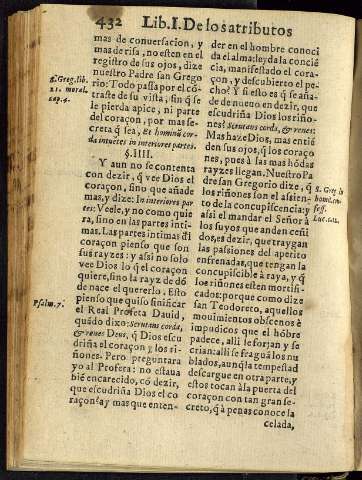 432 Lib. I. De los atributos
mas de conuersacion, y
mas de risa, no esten en el
registro de sus ojos, dize
nuestro Padre san Grego
rio: Todo passa por el cō
traste de su vista, sin q̃ se
le pierda apice, ni parte
del coraçon, por mas se-
creta q̃ sea, Et hominũ cor-
da intuetes in interiores partes.
§. IIII.
Y aun no se contenta
con dezir, q̃ vee Dios el
coraçon, sino que añade
mas, y dize: In interiores par
tes: Veele, y no como quie
ra, sino en las partes inti-
mas. Las partes intimas d̃l
coraçon pienso que son
sus rayzes: y assi no solo
vee Dios lo q̃ el coraçon
quiere, sino la rayz de dō
de nace el quererlo. Esto
pienso que quiso sinificar
el Real Profeta Dauid,
quādo dixo: Scrutans corda,
& renes Deus, q̃ Dios escu
driña el coraçon y los ri-
ñones. Pero preguntara
yo al Profeta: no estaua
bié encarecido, cō dezir,
que escudriña Dios el co
raçon? a y mas que enten-
g. Greg. lib.
21. moral.
cap. 4.
Psalm. 7.
der en el hombre conoci
da el alma: leyda la conciē
cia, manifestado el cora-
çon, y descubierto el pe-
cho? Y si esto es q̃ se aña-
de de nueuo en dezir, que
escudriña Dios los riño-
nes? Scrutans corda, & renes:
Mas haze Dios, mas enti̇ē
den sus ojos, q̃ los coraço
nes, pues à las mas hōdas
rayzes llegan. Nuestro Pa
dre san Gregorio dize, q̃
los riñones son el assien-
to de la concupiscencia: y
assi el mandar el Señor à
los suyos que anden ceñi
dos, es dezir, que traygan
las passiones del apetito
enfrenadas, que tengan la
concupiscible à raya, y q̃
los riñones esten mortifi-
cados: porque como dize
san Teodoreto, aquellos
mouimientos obscenos è
impudicos que el hōbre
padece, alli le forjan y se
crian: alli se fragua los nu
blados, aunq̃ la tempestad
descargue en otra parte, y
estos tocan à la puerta del
coraçon con tan gran se-
creto, q̃ à penas conoce la
celada,
g. Greg.
Luc. 12.